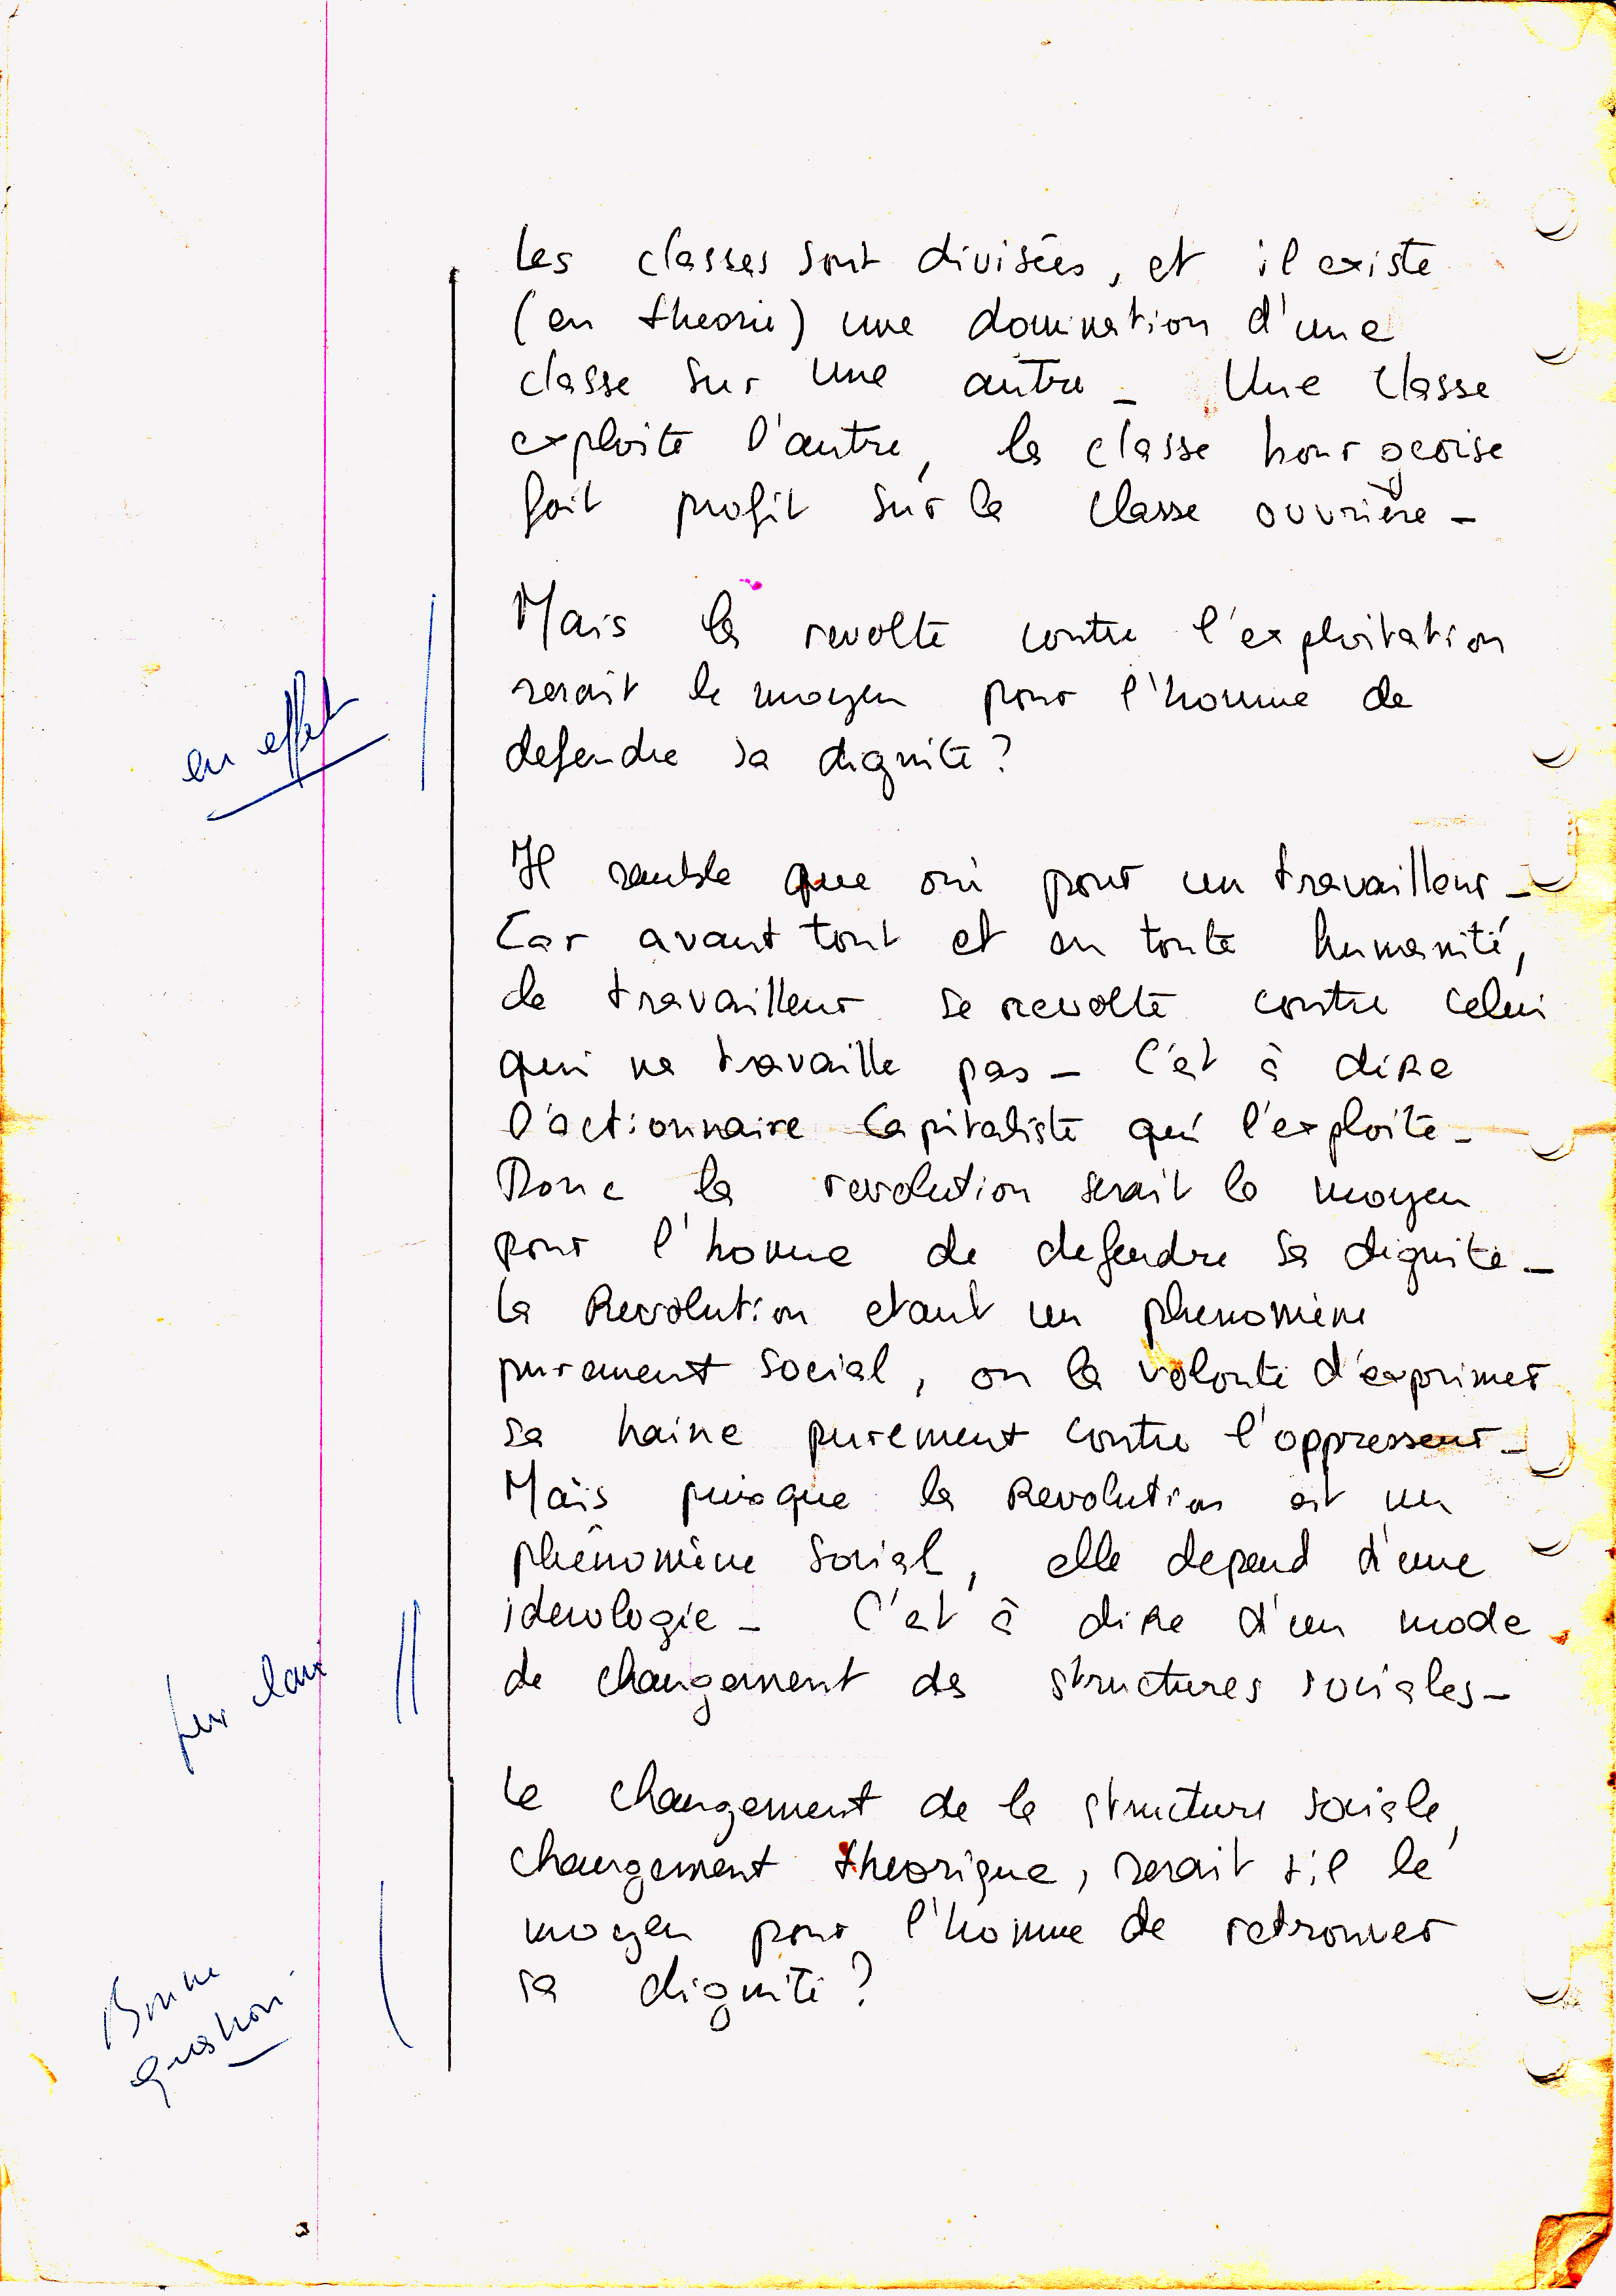 Les classes sont divisées, et il existe
(en theorie) une domination d'une
classe sur une autre _ Une classe
exploite l'autre, la classe bourgeoise
fait profit sur la classe ouvrière _
Mais la revolte contre l'exploitation
serait le moyen pour l'homme de
defendre sa dignité ?
en effet
Il semble que oui pour un travailleur _
Car avant tout et en toute humanité,
le travailleur se revolte contre celui
qui ne travaille pas _ C'est à dire
l'actionnaire capitaliste qui l'exploite _
Donc la revolution serait le moyen
pour l'homme de defendre sa dignité _
La Revolution etant un phenomène
purement social, ou la volonté d'exprimer
sa haine purement contre l'oppresseur _
Mais puisque la Revolution est un
phénomène social, elle depend d'une
ideologie _ C'est à dire d'un mode
de changement des structures sociales _
peu clair
Le changement de la structure sociale,
changement theorique, serait t'il le
moyen pour l'homme de retrouver
sa dignité ?
Bonne
question.